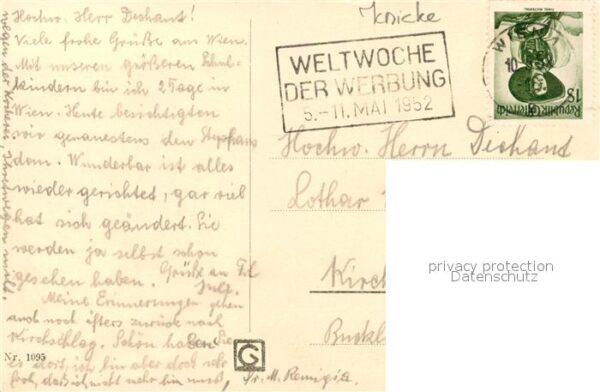 Hochw. Herr Dechant!
Viele frohe Grüße aus Wien.
Mit unseren größeren Schul-
kindern bin ich 2 Tage in
Wien. Heute besichtigten
wir genauestens den Stephans
dom. Wunderbar ist alles
wieder gerichtet, gar viel
hat sich geändert. Sie
werden ja selbst schon
gesehen haben. Grüße an Frl
Meine Erinnerungen gehen
auch noch öfters zurück nach
Kirchschlag. Schön haben Sie
es dort, ich bin aber doch sehr
froh, daß ich nicht mehr bin
Sr. M. Remigia
Nr. 1095
G
Knicke
WELTWOCHE
DER WERBUNG
5.-11. MAI 1952
WIEN
10
Republik Österreich
1S
Hochw. Herrn Dechant
Lothar
Kirch
Buckl
privacy protection
Datenschutz